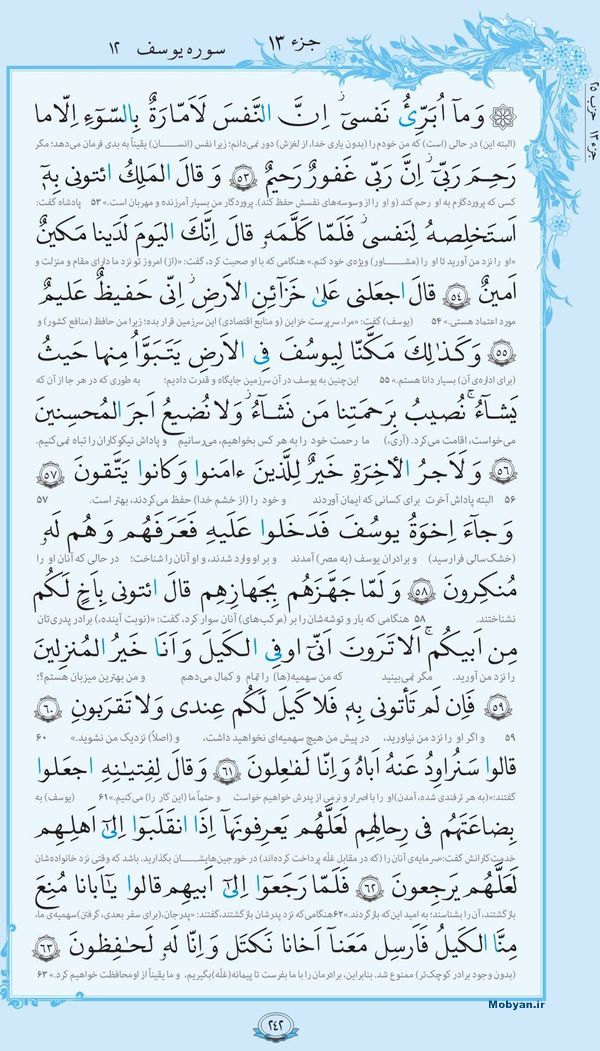 جزء ۱۳ سوره یوسف ۱۲
جزء ۱۳ حزب ۲۵
وَ مآ اُبَرِّئُ نَفسیٓ ۚ اِنَّ النَّفسَ لَاَمّارَةٌ بِالسّوٓءِ اِلّا ما
(البته این) در حالی (است) که من خودم را (بدون یاری خدا، از لغزش) دور نمی‌دانم؛ زیرا نفس (انسان) یقیناً به بدی فرمان می‌دهد؛ مگر
رَحِمَ رَبّیٓ ۚ اِنَّ رَبّی غَفورٌ رَحیمٌ ﴿۵۳﴾ وَ قالَ المَلِكُ ائتونی بِهٖٓ
کسی که پروردگارم به او رحم کند (و او را از وسوسه‌های نفسش حفظ کند). پروردگار من بسیار آمرزنده و مهربان است.» ۵۳ پادشاه گفت:
اَستَخلِصهُ لِنَفسی ۖ فَلَمّا كَلَّمَهٗ قالَ اِنَّكَ الیَومَ لَدَینا مَكینٌ
«او را نزد من آورید تا او را (مشاور) ویژه‌ی خود کنم.» هنگامی که با او صحبت کرد، گفت: «(از) امروز تو نزد ما دارای مقام و منزلت و
اَمینٌ ﴿۵۴﴾ قالَ اجعَلنی عَلیٰ خَزآئِنِ الاَرضِ ۖ اِنّی حَفیظٌ عَلیمٌ
مورد اعتماد هستی.» ۵۴ (یوسف) گفت: «مرا، سرپرست خزاین (و منابع اقتصادی) این سرزمین قرار بده؛ زیرا من حافظ (منافع کشور) و
﴿۵۵﴾ وَ كَذٰلِكَ مَكَّنّا لِیوسُفَ فِی الاَرضِ یَتَبَوَّاُ مِنها حَیثُ
(برای اداره‌ی آن) بسیار دانا هستم.» ۵۵ این‌چنین به یوسف در آن سرزمین جایگاه و قدرت دادیم؛ به طوری که در هر جا از آن که
یَشآءُ ۚ نُصیبُ بِرَحمَتِنا مَن نَشآءُ ۖ وَ لا نُضیعُ اَجرَ المُحسِنینَ
می‌خواست، اقامت می‌کرد. (آری،) ما رحمت خود را به هر کس بخواهیم، می‌رسانیم و پاداش نیکوکاران را تباه نمی‌کنیم.
﴿۵۶﴾ وَ لَاَجرُ الأخِرَةِ خَیرٌ لِلَّذینَ ءامَنوا وَ كانوا یَتَّقونَ ﴿۵۷﴾
۵۶ البته پاداش آخرت برای کسانی که ایمان آوردند و خود را (از خشم خدا) حفظ می‌کردند، بهتر است. ۵۷
وَ جآءَ اِخوَةُ یوسُفَ فَدَخَلوا عَلَیهِ فَعَرَفَهُم وَ هُم لَهٗ
(خشک‌سالی فرا رسید) و برادران یوسف (به مصر) آمدند و بر او وارد شدند، و او آنان را شناخت؛ در حالی که آنان او را
مُنكِرونَ ﴿۵۸﴾ وَ لَمّا جَهَّزَهُم بِجَهازِهِم قالَ ائتونی بِاَخٍ لَكُم
نشناختند. ۵۸ هنگامی که بار و توشه‌شان را بر (مرکب‌های) آنان سوار کرد، گفت: «(نوبت آینده،) برادر پدری‌تان
مِن اَبیكُم ۚ اَلا تَرَونَ اَنّیٓ اوفِی الكَیلَ وَ اَنَا خَیرُ المُنزِلینَ
را نزد من آورید. مگر نمی‌بینید که من سهمیه(ها) را تمام و کمال می‌دهم و من بهترین میزبان هستم؟
﴿۵۹﴾ فَاِن لَم تَأتونی بِهٖ فَلا كَیلَ لَكُم عِندی وَ لا تَقرَبونِ ﴿۶۰﴾
۵۹ و اگر او را نزد من نیاورید، در پیش من هیچ سهمیه‌ای نخواهید داشت، و (اصلاً) نزدیک من نشوید.» ۶۰
قالوا سَنُراوِدُ عَنهُ اَباهُ وَ اِنّا لَفٰعِلونَ ﴿۶۱﴾ وَ قالَ لِفِتیٰنِهِ اجعَلوا
گفتند: «(به هر ترفندی شده، آمدن) او را با اصرار و نرمی از پدرش خواهیم خواست و حتماً ما (این کار را) می‌کنیم.» ۶۱ (یوسف) به
بِضاعَتَهُم فی رِحالِهِم لَعَلَّهُم یَعرِفونَهآ اِذَا انقَلَبوٓا اِلیٰٓ اَهلِهِم
خدمت‌کارانش گفت: «سرمایه‌ی آنان را (که در مقابل غلّه پرداخت کرده‌اند) در خورجین‌هایشان بگذارید. باشد که وقتی نزد خانواده‌شان
لَعَلَّهُم یَرجِعونَ ﴿۶۲﴾ فَلَمّا رَجَعوٓا اِلیٰٓ اَبیهِم قالوا یٰٓاَبانا مُنِعَ
بازگشتند، آن را بشناسند؛ به امید این که بازگردند.» ۶۲ هنگامی که نزد پدرشان بازگشتند، گفتند: «پدرجان، (برای سفر بعدی، گرفتن) سهمیه‌ی ما،
مِنَّا الكَیلُ فَاَرسِل مَعَنآ اَخانا نَكتَل وَ اِنّا لَهٗ لَحٰفِظونَ ﴿۶۳﴾
(بدون وجود برادر کوچک‌تر) ممنوع شد. بنابراین، برادرمان را با ما بفرست تا پیمانه (غلّه) بگیریم، و ما یقیناً از او محافظت خواهیم کرد.» ۶۳
Mobyan.ir
۲۴۲